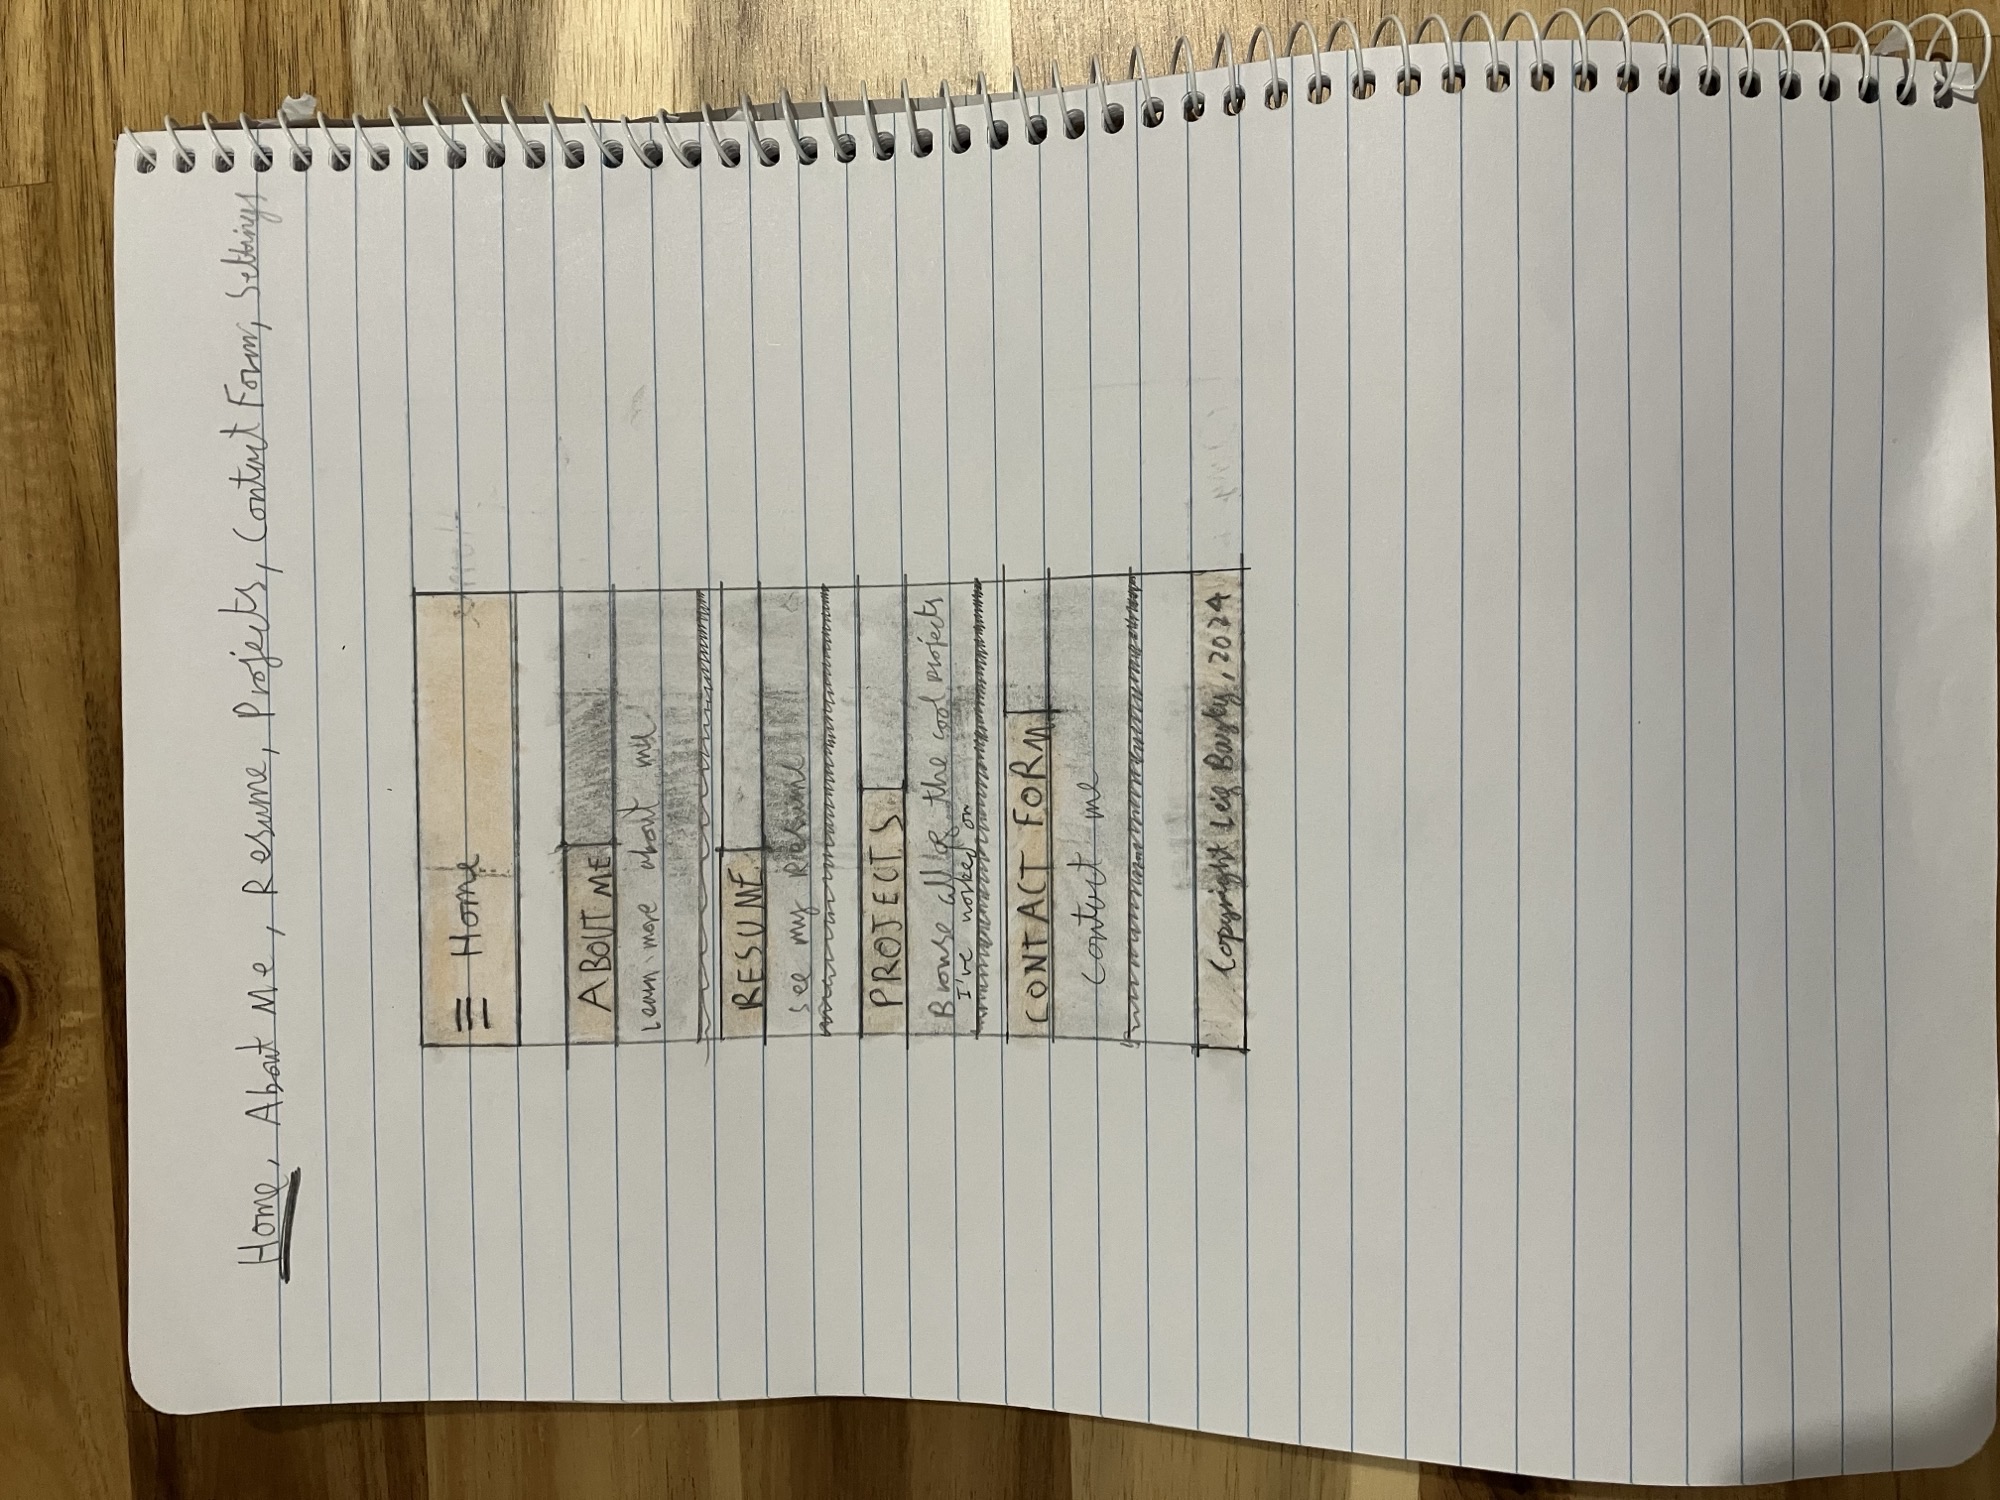 Home, About Me, Resume, Projects, Contact Form, Settings
Home
ABOUT ME
Learn more about me
RESUME
See my Resume
PROJECTS
Browse all of the cool projects
I've worked on
CONTACT FORM
Contact me
Copyright Leig , 2024